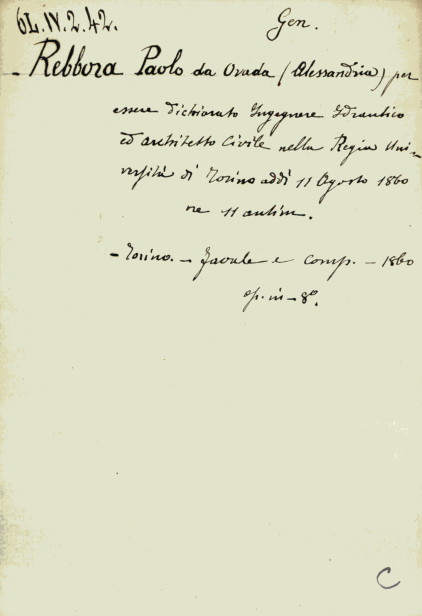 6L.IV.2.42.
Gen.
- Rebbora Paolo da Ovada (Alessandria) per
essere dichiarato Ingegnere Idraulico
ed architetto Civile nella Regia Uni-
versità di Torino addì 11 Agosto 1860
ore 11 antim.
- Torino. - Favale e comp. - 1860
op. in - 8°.
C